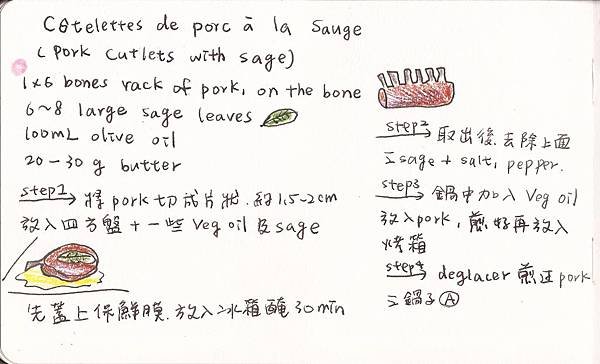 Côtelettes de porc à la Sauge
(Pork Cutlets with sage)
1x6 bones rack of pork, on the bone
6~8 large sage leaves
100mL olive oil
20-30 g butter
step1 將 pork 切成片狀. 約1.5-2cm
放入四方盤 + 一些 Veg oil 及 sage
先蓋上保鮮膜. 放入冰箱醃 30 min
step2 取出後, 去除上面
之 sage + salt, pepper.
step3 鍋中加入 Veg oil
放入 pork, 煎好再放入
烤箱
step4 deglacer 煎过 pork
之鍋子 A